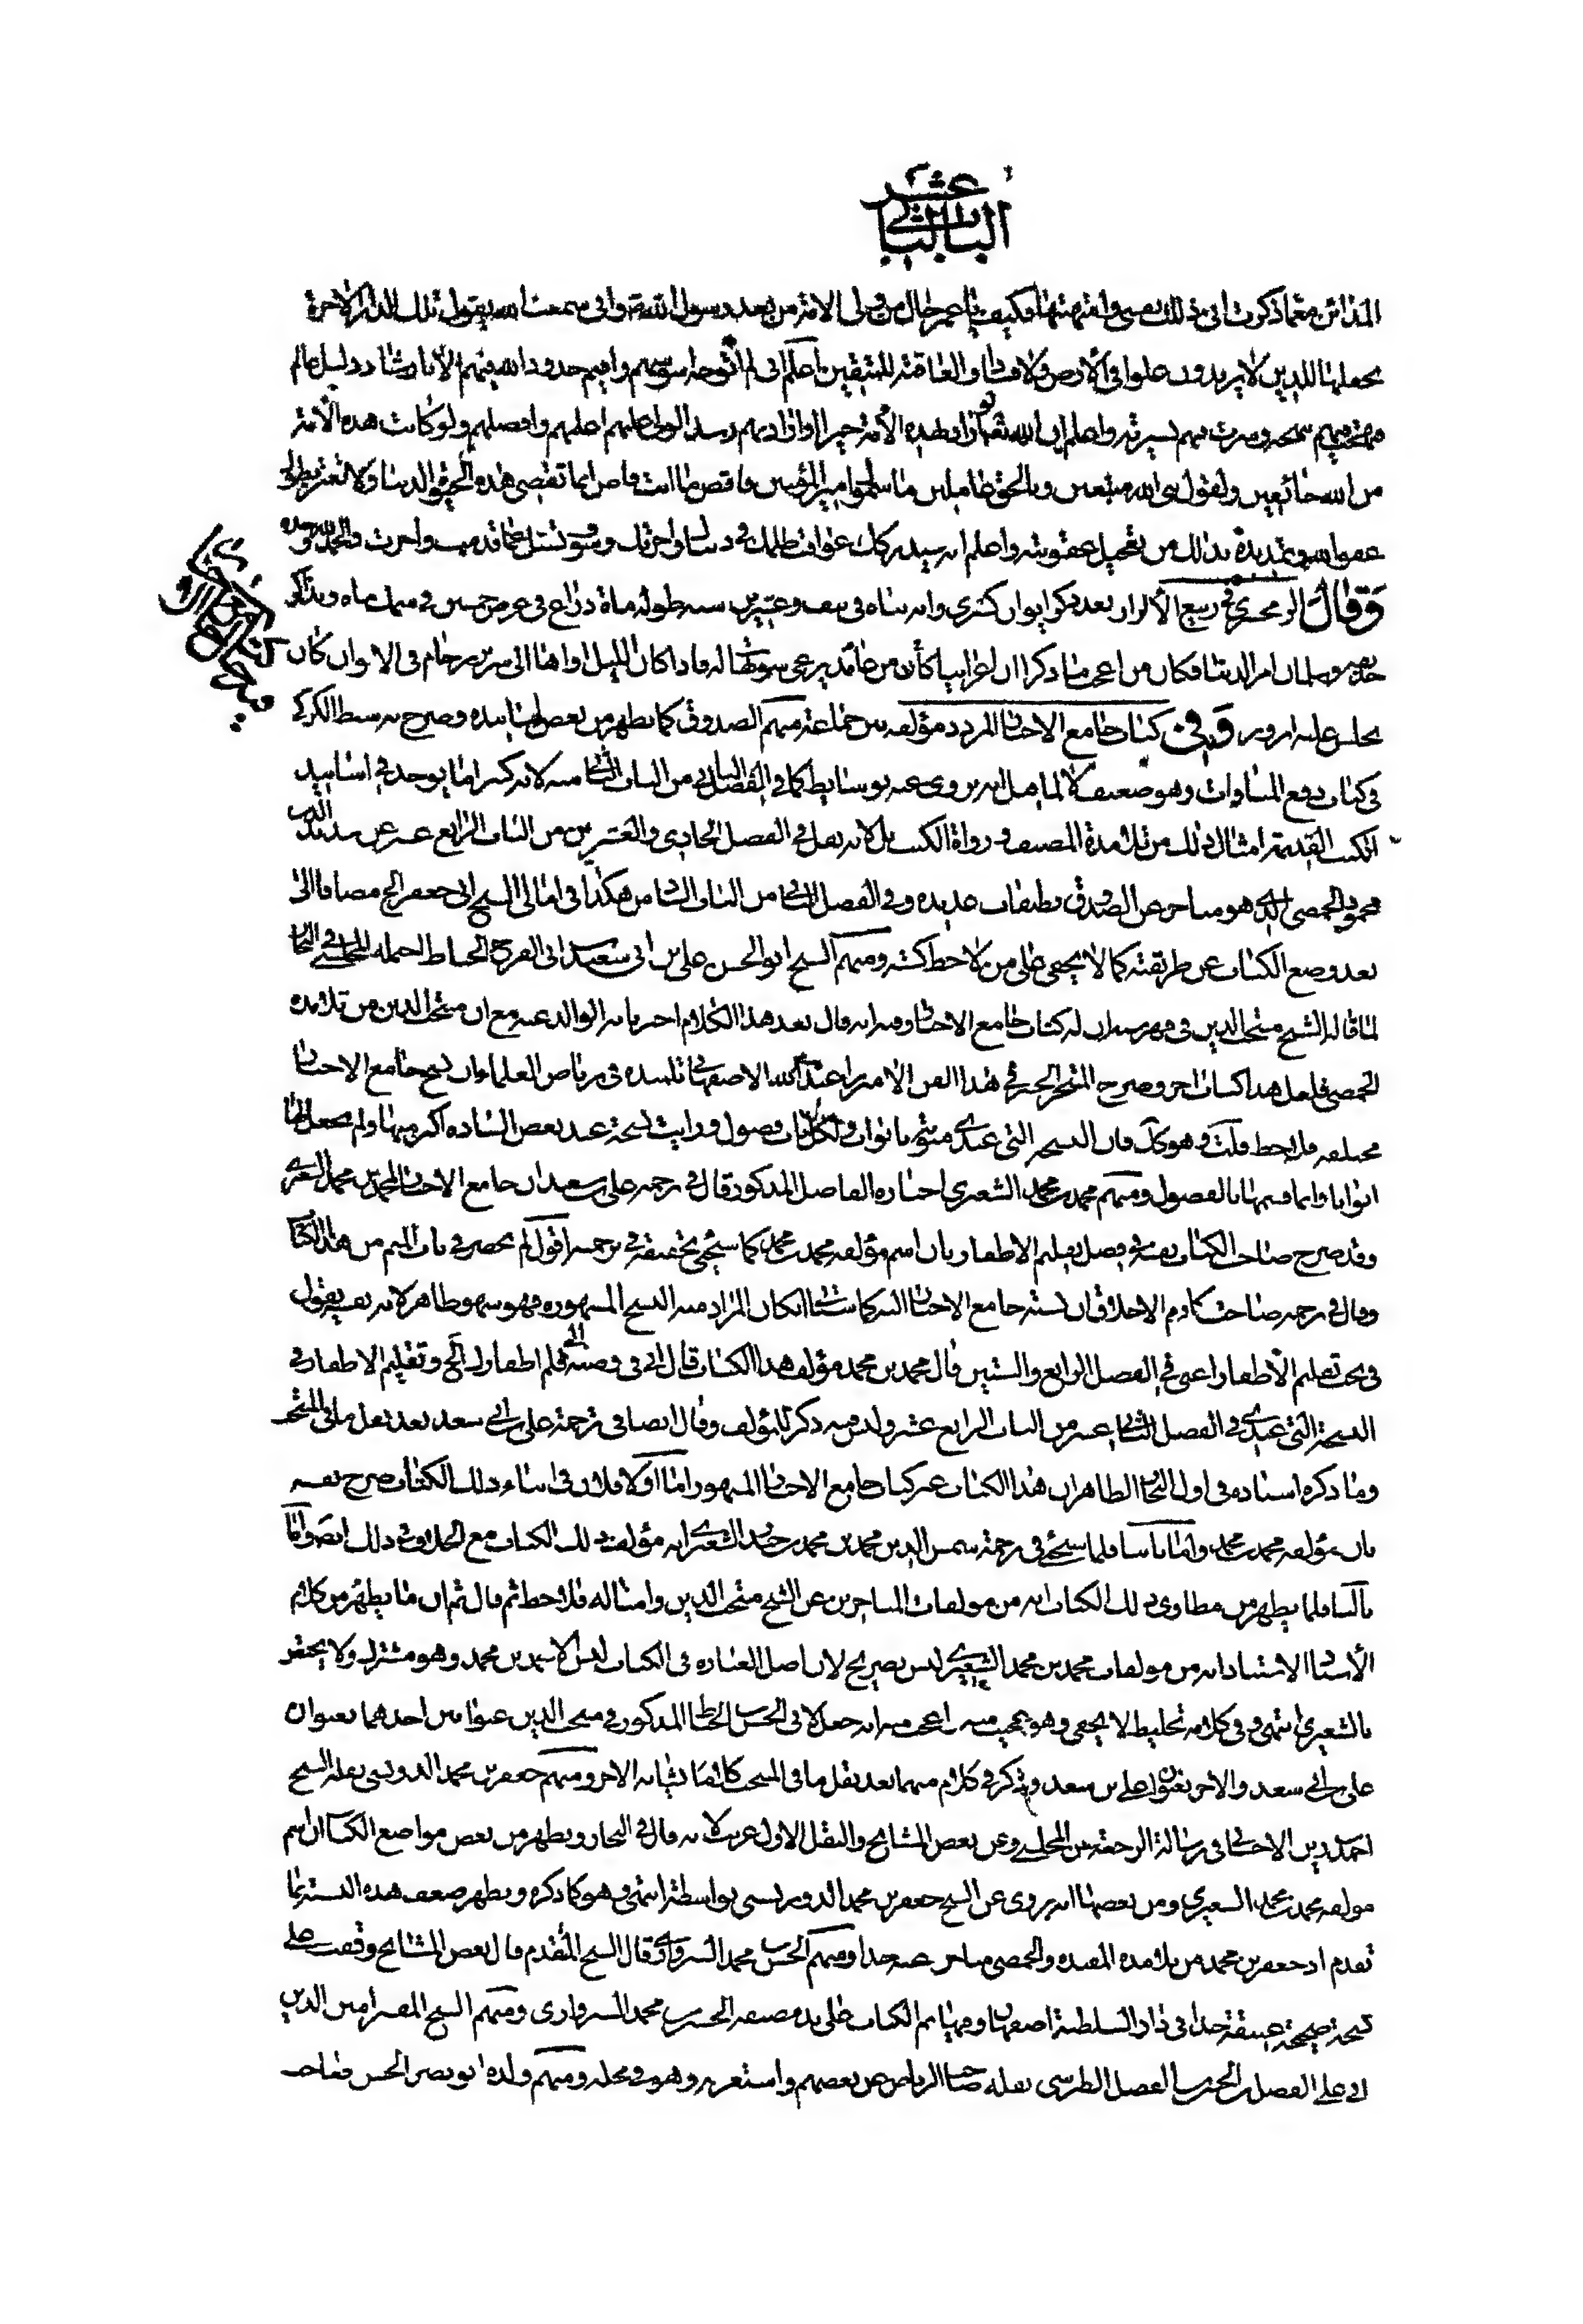 الباب الثاني عشر
المدائن مع ما ذكرت اني بذلك نفسي وامتهنتها فكيف يا عمر حال من ولى الامة من بعد رسول الله ص واني سمعت الله يقول تلك الدار الاخرة
نجعلها للذين لا يريدون علوا في الأرض ولا فسادا والعاقبة للمتقين اعلم اني لم اتوجه اسوسهم واقيم حدود الله فيهم الا بارشاد دليل عالم
فنهجت فيهم بنهجه وسرت فيهم بسيرته واعلم ان الله تعالى لو اراد بهذه الأمة خيرا او اراد بهم رشدا لولى عليهم اعلمهم وافضلهم ولو كانت هذه الأمة
من الله خائفين ولقول نبي الله متبعين وبالحق عاملين ما سموك امير المؤمنين فاقض ما انت قاض انما تقضي هذه الحيوة الدنيا ولا تغتر بطول
عفو الله وتمديده بذلك من تعجيل عقوبته واعلم انه سيدركك عواقب ظلمك في دنياك واخرتك وسوف تسئل عما قدمت واخرت والحمد لله وحده
وقال الزمخشري في ربيع الأبرار بعد ذكر ايوان كسرى وانه بناه في نيف وعشرين سنة طوله مائة ذراع في عرض خمسين في سمك مائة
سلمان امر الدنيا فكان من اعجب ما ذكرا ان اعرابيا كان من غامد يرعى شويهات له فاذا كان الليل اواها الى سرير رخام في الايوان كان
يجلس عليه ابرويز وفي كتاب جامع الاخبار المردد مؤلفه بين جماعة منهم الصدوق كما يظهر من بعض اسانيده وصرح به بسط الكركي
في كتاب رفع المناوات وهو ضعيف لا لما قيل انه يروى عنه بوسايط كما في الفصل من الباب الثامن منه لانه كثيرا ما يوجد في اسانيد
الكتب القديمة امثال ذلك من تلامذة المصنف ورواة الكتب بل لانه نقل في الفصل الحادي والعشرين من الباب الرابع عشر عن سديد الدين
محمود الحمصي الذي هو متاخر عن الصدوق بطبقات عديدة وفي الفصل الثاني من الباب الثامن هكذا في امالي الشيخ ابي جعفر الخ مضافا الى
بعد وضع الكتاب عن طريقته كما لا يخفى على من لاحظ كتبه ومنهم الشيخ ابو الحسن علي بن ابي سعيد ابي الفرج الخياط احتمله المجلسي في البحار
لما قاله الشيخ منتجب الدين في فهرسه ان له كتاب جامع الاخبار وفيه انه قال بعد هذا الكلام اخبرنا به الوالد عنه مع ان منتجب الدين من تلامذة
الحمصي فلعل هذا كتاب اخر وصرح المتبحر الخبير في هذا الفن الامير زا عبد الله الاصفهاني تلميذه في رياض العلماء وان نسخ جامع الاخبار
مختلفة فلاحظ قلت وهو كذلك فان النسخة التي عندي مبوبة بابواب ولكل باب فصول ورايت نسخة عند بعض السادة اكبر منها ولم يجعل لها
ابوابا وانما قسمها بالفصول ومنهم محمد بن محمد الشعيري اختاره الفاضل المذكور قال في ترجمة علي بن سعيد ان جامع الاخبار لمحمد بن محمد الشعيري
وقد صرح صاحب الكتاب بنفسه في فصل تقليم الاظفار بان اسم مؤلفه محمد بن محمد كما سيجئ تحقيقه في ترجمته اقول لم يحضرني باب الميم من هذا الكتاب
وقال في ترجمة صاحب مكارم الاخلاق ان نسبة جامع الاخبار اليه كما سيأتي ان كان المراد منه النسخ المشهورة فهو سهو ظاهر لانه نفسه يقول
في بحث تقليم الأظفار اعني في الفصل الرابع والستين قال محمد بن محمد مؤلف هذا الكتاب قال ابي في وصيته الي قلم اظفارك الخ وتقليم الاظفار في
النسخة التي عندي في الفصل الثاني عشر من الباب الرابع عشر وليس فيه ذكر للمؤلف وقال ايضا في ترجمة علي بن ابي سعد بعد نقل ما في المنتجب
وما ذكره استاده في اول البحار الظاهر ان هذا الكتاب غير كتاب جامع الاخبار المشهور اما اولا فلان في اثناء ذلك الكتاب صرح نفسه
بان مؤلفه محمد بن محمد واما ثانيا فلما سيجئ في ترجمة شمس الدين محمد بن محمد بن حيدر الشعيري انه مؤلف ذلك الكتاب مع الخلاف في ذلك ايضا واما
ثالثا فلما يظهر من مطاوي ذلك الكتاب انه من مؤلفات المتاخرين عن الشيخ منتجب الدين وامثاله فلاحظ ثم قال ثم ان ما يظهر من كلام
الأستاد الاستناد انه من مؤلفات محمد بن محمد الشعيري ليس بصريح لان اصل العبارة في الكتاب ليس الا محمد بن محمد وهو مشترك ولا يختص
بالشعيري انتهى وفي كلامه تخليط لا يخفى وهو عجيب منه واعجب منه انه جعل لابي الحسن الخياط المذكور في منتجب الدين عنوانين احدهما بعنوان
علي بن ابي سعد والاخر بعنوان علي بن سعد وذكر في كلام منهما بعد نقل ما في المنتجب كلاما ومنهم جعفر بن محمد الدوريستي نقله الشيخ
احمد بن زين الاحسائي في رسالة الرجعة عن المجلسي وعن بعض المشايخ والنقل الاول غريب لانه قال في البحار ويظهر من بعض مواضع الكتاب ان اسم
مولفه محمد بن محمد الشعيري ومن بعضها انه يروى عن الشيخ جعفر بن محمد الدوريستي بواسطة انتهى وهو كما ذكره ويظهر ضعف هذه النسبة بما
تقدم اذ جعفر بن محمد من تلامذة المفيد والحمصي متاخر عنه جدا ومنهم الحسن بن محمد السبزواري قال الشيخ المتقدم قال بعض المشايخ وقفت على
نسخة صحيحة عتيقة جدا في دار السلطنة اصفهان وفيها تم الكتاب على يد مصنفه الحسن بن محمد السبزواري ومنهم الشيخ المفسر امين الدين
ابو علي الفضل بن الحسن بن الفضل الطبرسي نقله صاحب الرياض عن بعضهم واستغربه وهو في محله ومنهم ولده ابو نصر الحسن صاحب